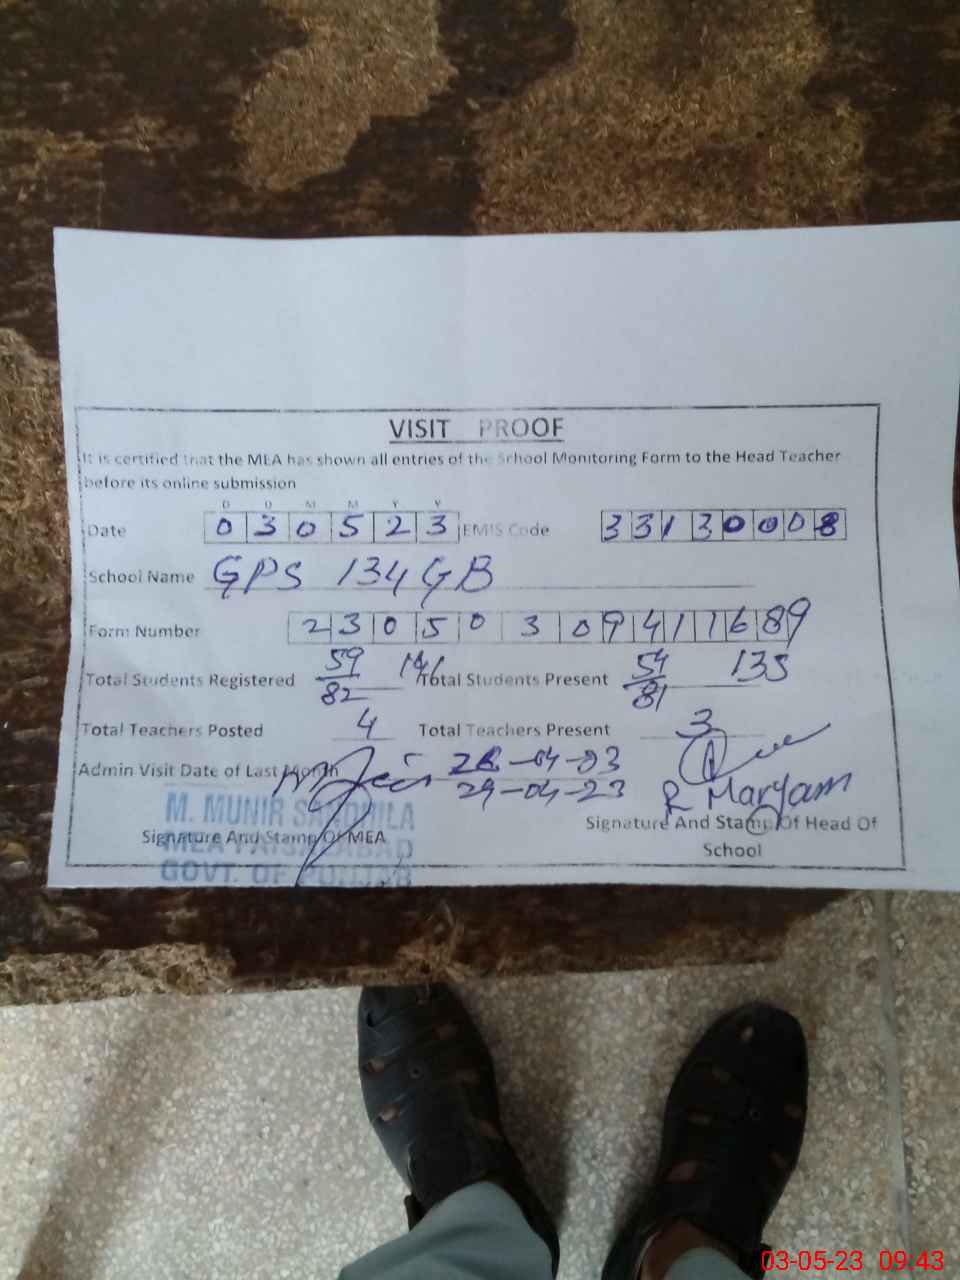 VISIT PROOF
It is certified that the MEA has shown all entries of the School Monitoring Form to the Head Teacher
before its online submission
D D M M Y Y
Date 030523 EMIS Code 33130008
School Name GPS 134 GB
Form Number 23050309411689
Total Students Registered 59/82 141 Total Students Present 54/81 135
Total Teachers Posted 4 Total Teachers Present 3
Admin Visit Date of Last Month 28-04-23
29-04-23
R Maryam
M. MUNIR SANDHILA
Signature And Stamp Of MEA
MEA FAISALABAD
GOVT. OF PUNJAB
Signature And Stamp Of Head Of
School
03-05-23 09:43